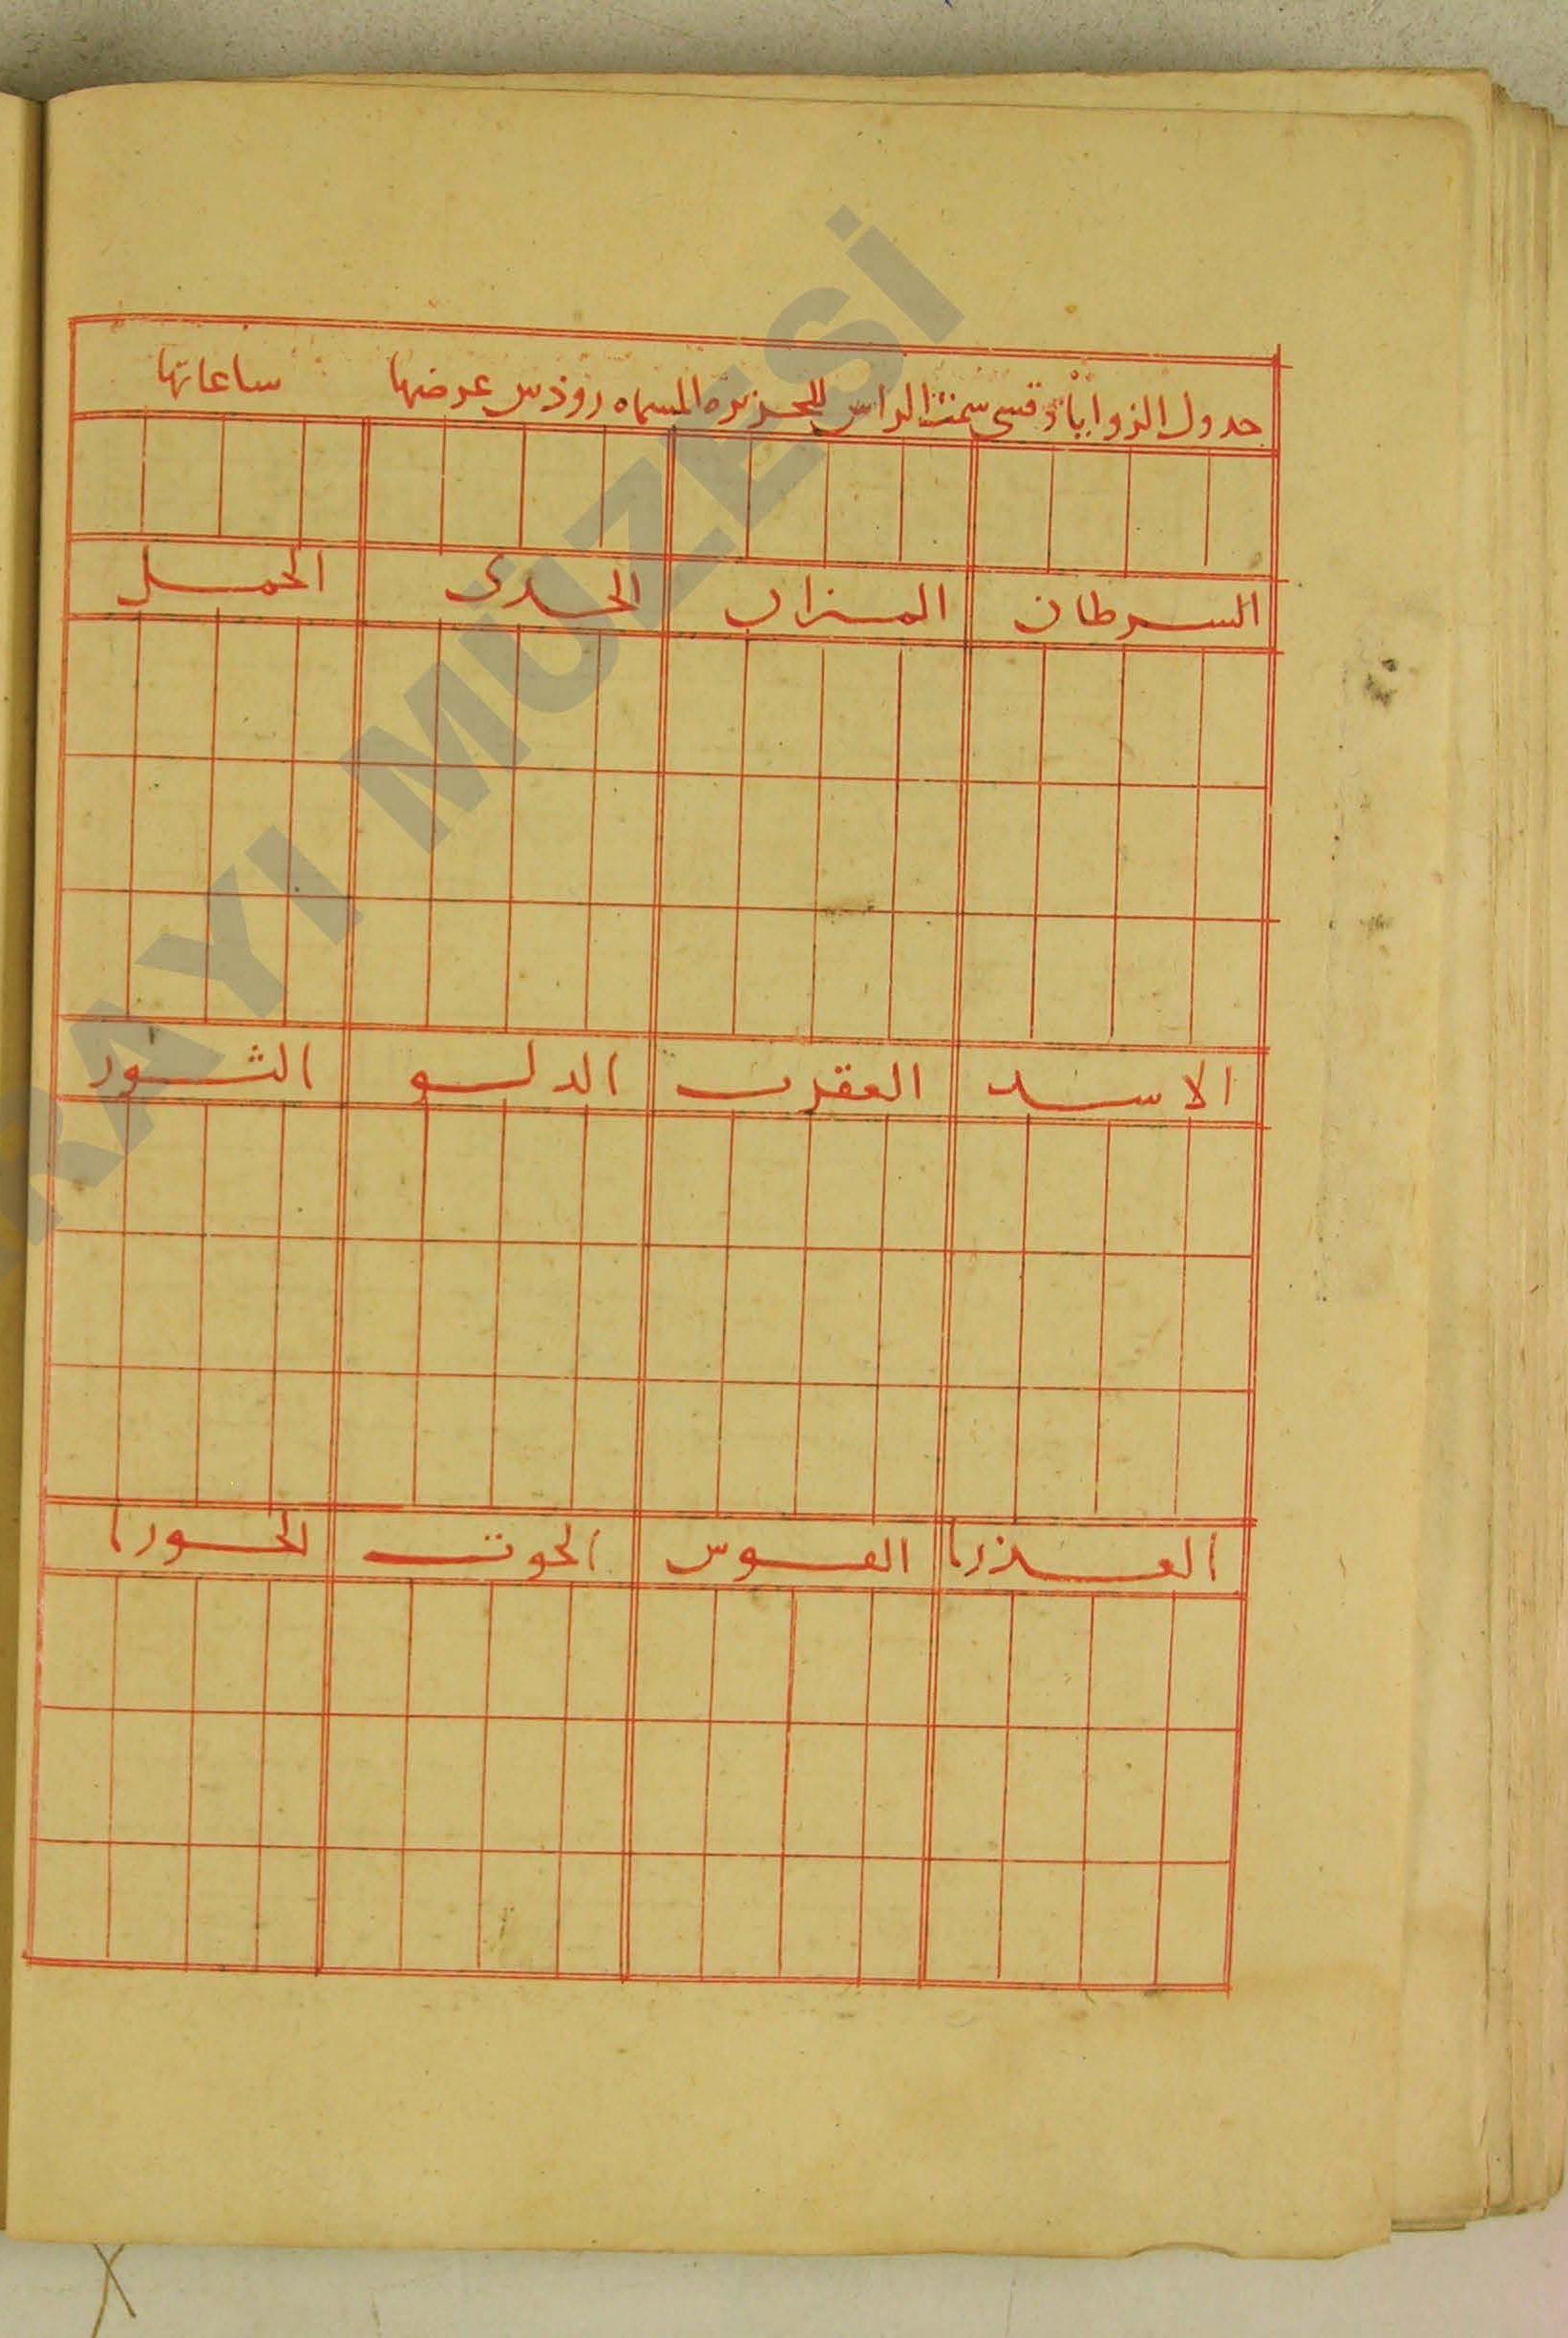 جدول الزوايا وقسي سمت الراس للجزيره المسماه روذس عرضها ساعاتها
السرطان الميزان الجدى الحمل
الاسد العقرب الدلو الثور
العذرا القوس الحوت الجوزا
RAYI MÜZESİ